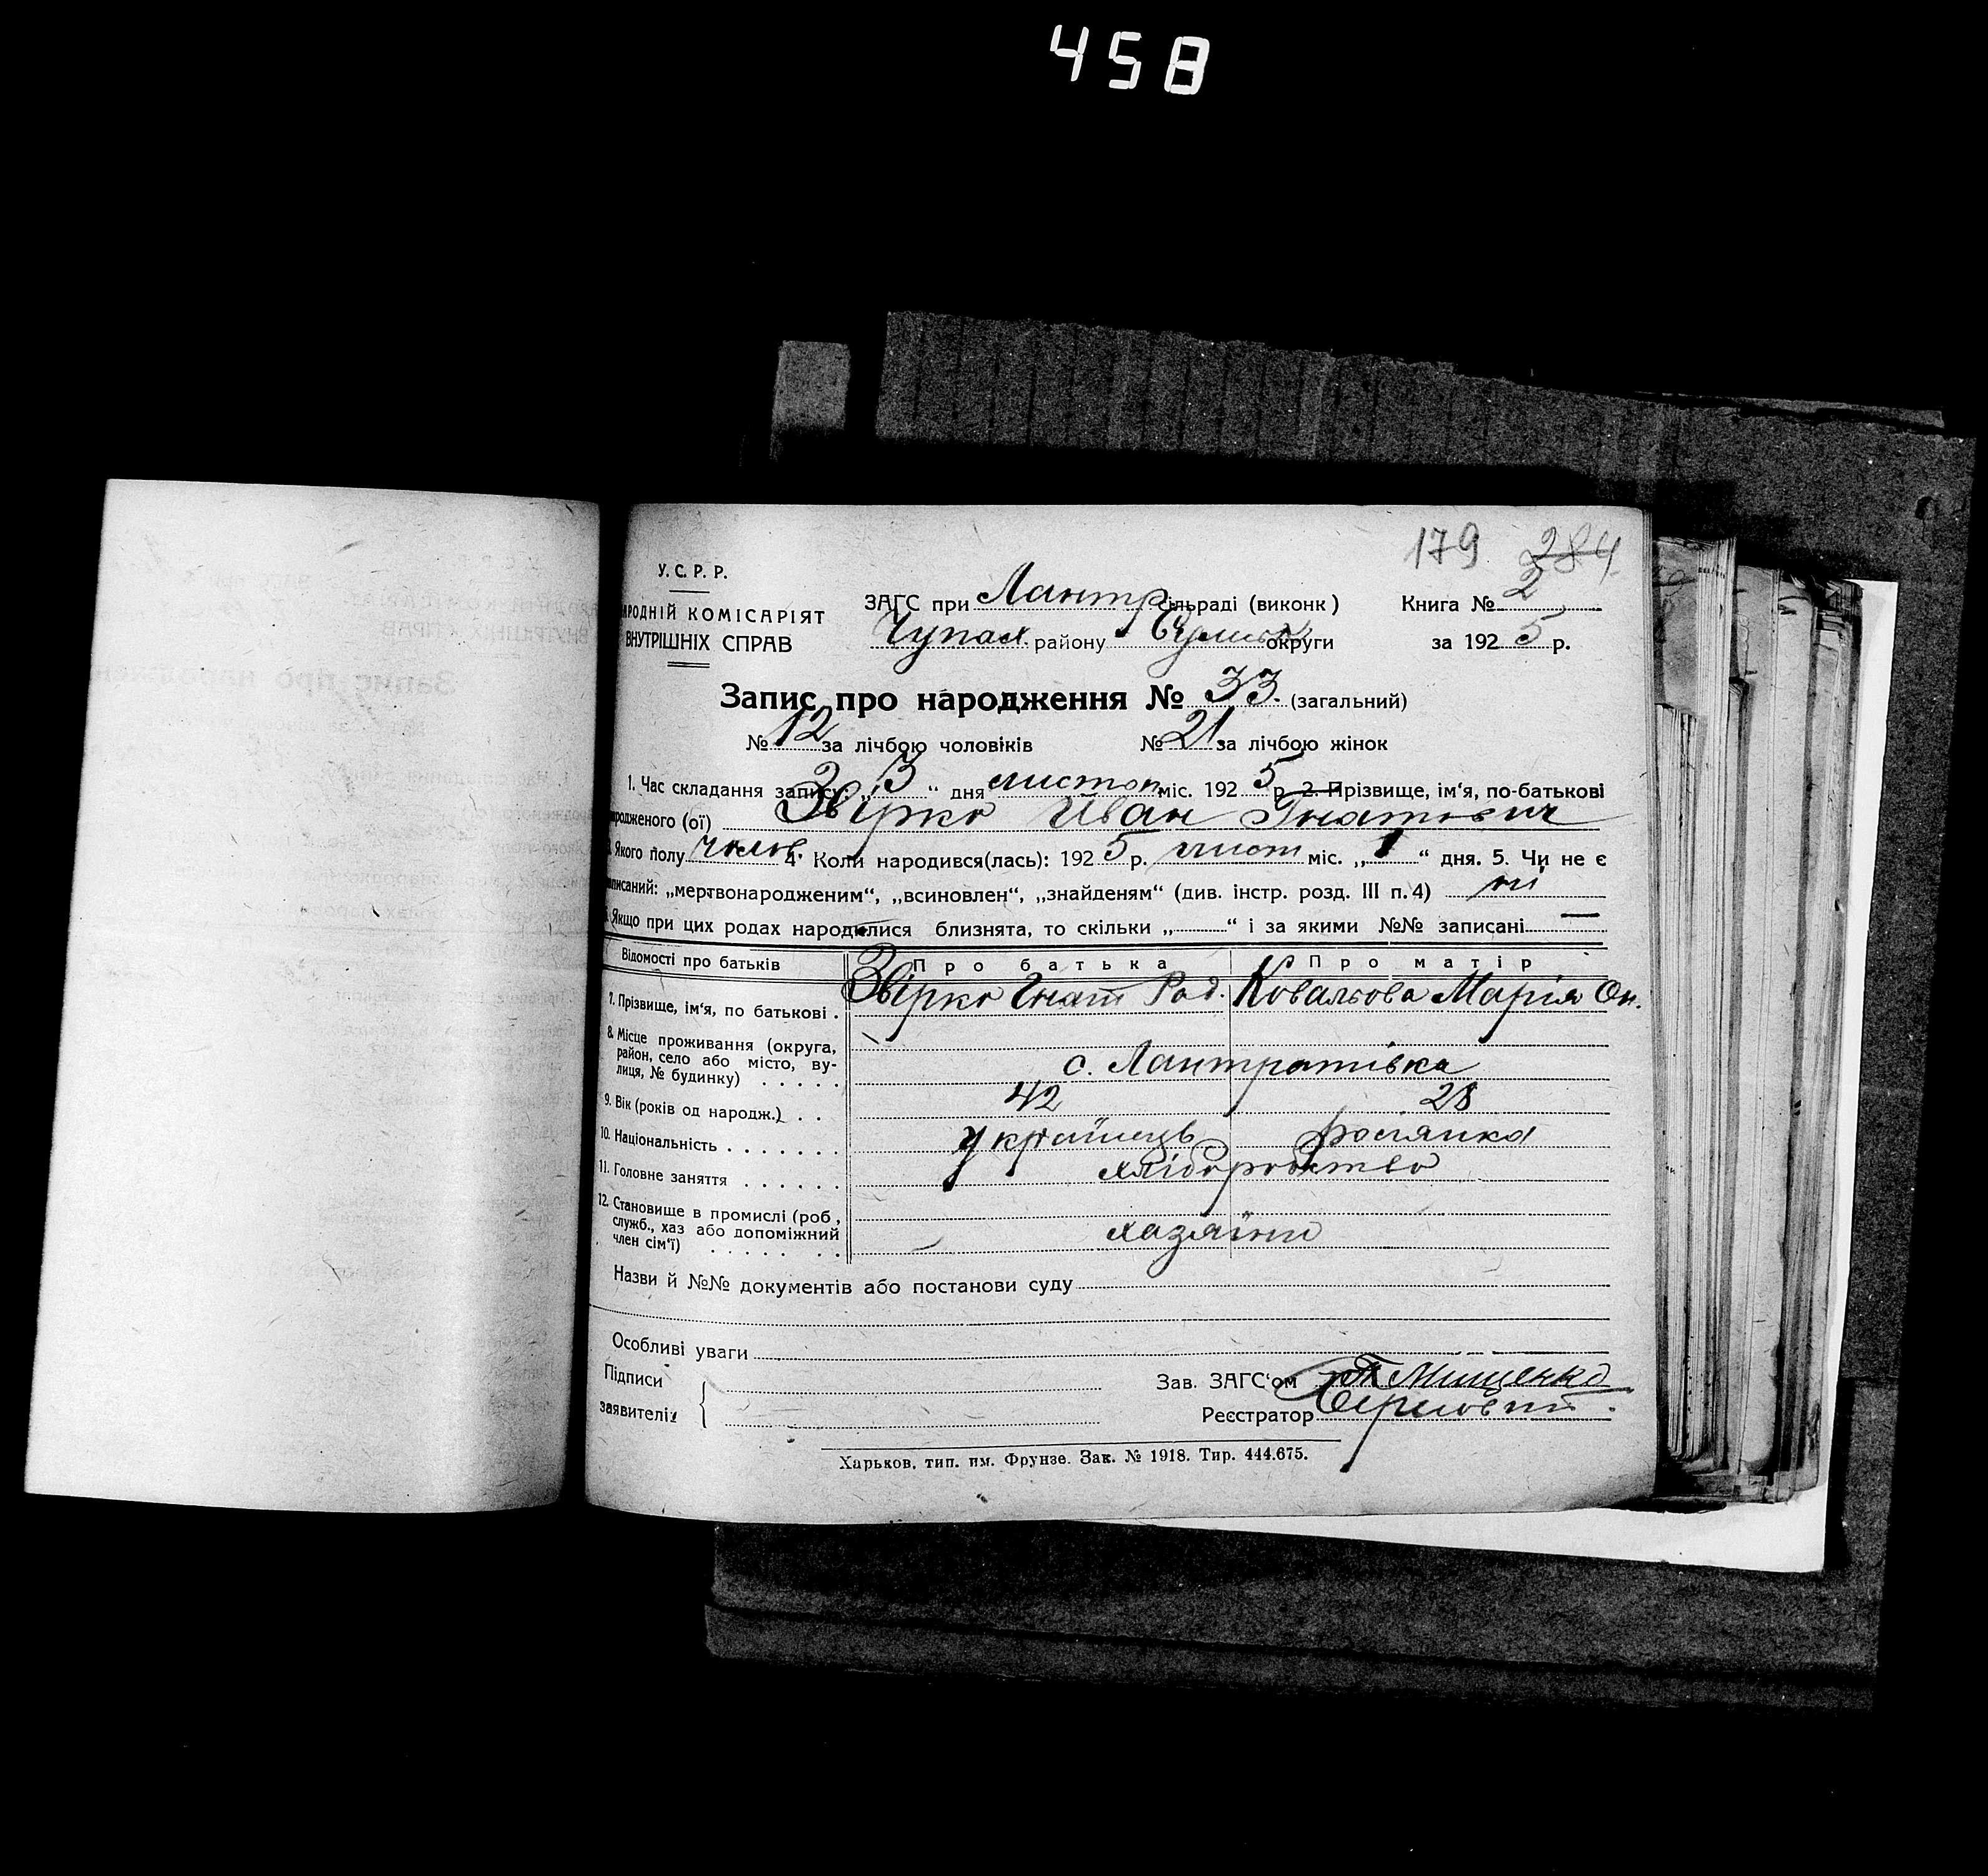 458
179 284
У. С. Р. Р.
АРОДНІЙ КОМІСАРІЯТ
ВНУТРІШНІХ СПРАВ
ЗАГС при Лантр ільраді (виконк)
Чупах. району Сумськ округи
Книга № 2
за 1925 р.
Запис про народження № 33. (загальний)
№ 12 за лічбою чоловіків № 21 за лічбою жінок
1. Час складання запису: „3“ дня листоп. міс. 1925 р. 2. Прізвище, ім'я, по-батькові
родженого (ої) Звірко Иван Гнатович
Якого полу чолов. 4. Коли народився(лась): 1925 р. лист міс. „1“ дня. 5. Чи не є
писаний: „мертвонародженим“, „всиновлен“, „знайденям“ (див. інстр. розд. III п. 4) ні
Якщо при цих родах народилися близнята, то скільки „ “ і за якими №№ записані —
Відомості про батьків Про батька Про матір
7. Прізвище, ім'я, по батькові . Звірко Гнат Род. Ковальова Марія Он.
8. Місце проживання (округа,
район, село або місто, ву-
лиця, № будинку) . . . . . с. Лантратівка
9. Вік (років од народж.) . . 42 28
10. Національність . . . . . . . українець росіянка
11. Головне заняття . . . . . . хліборобство
12. Становище в промислі (роб.,
служб., хаз або допоміжний
член сім'ї) . . . . . . . хазяіни
Назви й №№ документів або постанови суду
Особливі уваги
Підписи
заявителів
Зав. ЗАГС'ом Мищенко
Реєстратор
Харьков, тип. им. Фрунзе. Зак. № 1918. Тир. 444.675.